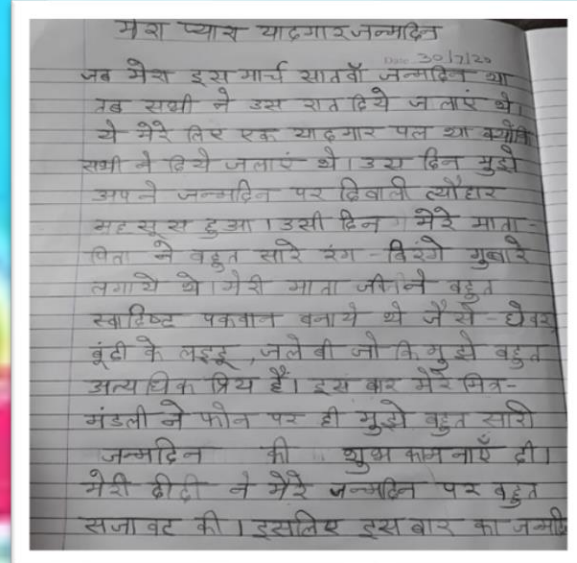 मेरा प्यारा यादगार जन्मदिन
Date 30/7/20
जब मेरा इस मार्च सातवाँ जन्मदिन था
तब सभी ने उस रात दिये जलाएं थे।
ये मेरे लिए एक यादगार पल था क्योंकि
सभी ने दिये जलाएं थे। उस दिन मुझे
अपने जन्मदिन पर दिवाली त्यौहार
महसूस हुआ। उसी दिन मेरे माता-
पिता ने बहुत सारे रंग-बिरंगे गुबारे
लगाये थे। मेरी माता जी ने बहुत
स्वादिष्ट पकवान बनाये थे जैसे-घेवर
बूंदी के लड्डू, जलेबी जो कि मुझे बहुत
अत्यधिक प्रिय हैं। इस बार मेरे मित्र-
मंडली ने फोन पर ही मुझे बहुत सारी
जन्मदिन की शुभकामनाएँ दी।
मेरी दीदी ने मेरे जन्मदिन पर बहुत
सजावट की। इसलिए इस बार का जन्मदि